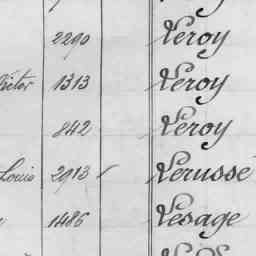 2290 Leroy
Victor 1313 Leroy
842 Leroy
Louis 2913 Lerusse
1486 Lesage